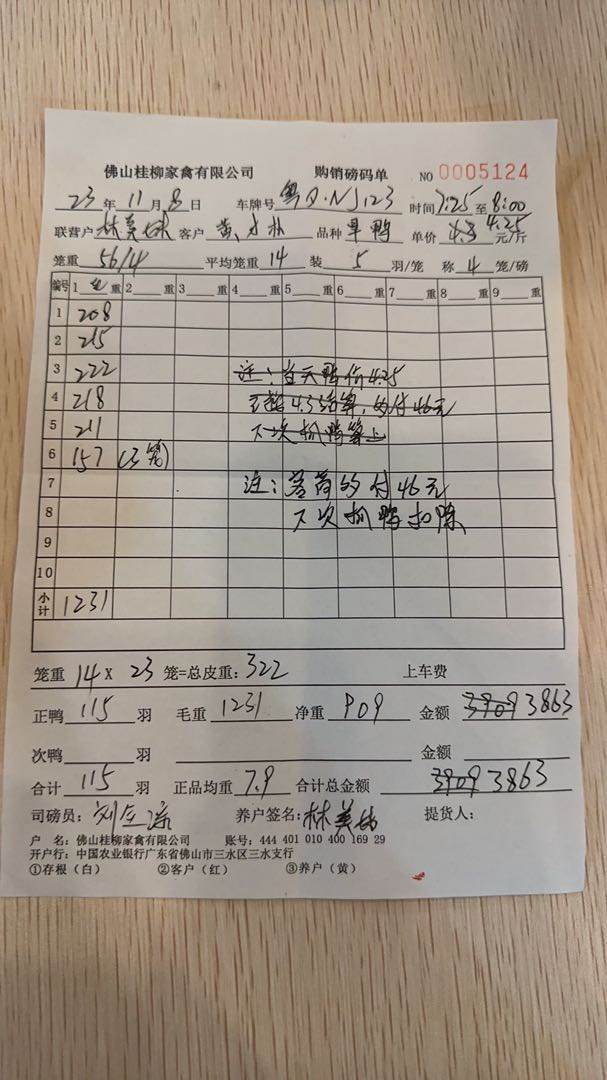 佛山桂柳家禽有限公司 购销磅码单 NO 0005124
23 年 11 月 8 日 车牌号 时间 7:25 至 8:00
联营户 林美 客户 黄 品种 单鸭 单价 4.3 4.25 元/斤
笼重 56/4 平均笼重 14 装 5 羽/笼 称 4 笼/磅
编号 1 重 2 重 3 重 4 重 5 重 6 重 7 重 8 重 9 重
1 208
2 215
3 222 注:当天鸭价4.25
4 218 4.3结算,付46元
5 211 下次抓鸭算上
6 157 (3笼)
7 注: 付46元
8 下次抓鸭扣除
9
10
小计 1231
笼重 14 X 23 笼=总皮重: 322 上车费
正鸭 115 羽 毛重 1231 净重 909 金额 3909 3863
次鸭 羽 金额
合计 115 羽 正品均重 7.9 合计总金额 3909 3863
司磅员: 刘 养户签名: 林美 提货人:
户 名: 佛山桂柳家禽有限公司 账号: 444 401 010 400 169 29
开户行: 中国农业银行广东省佛山市三水区三水支行
①存根(白) ②客户(红) ③养户(黄)